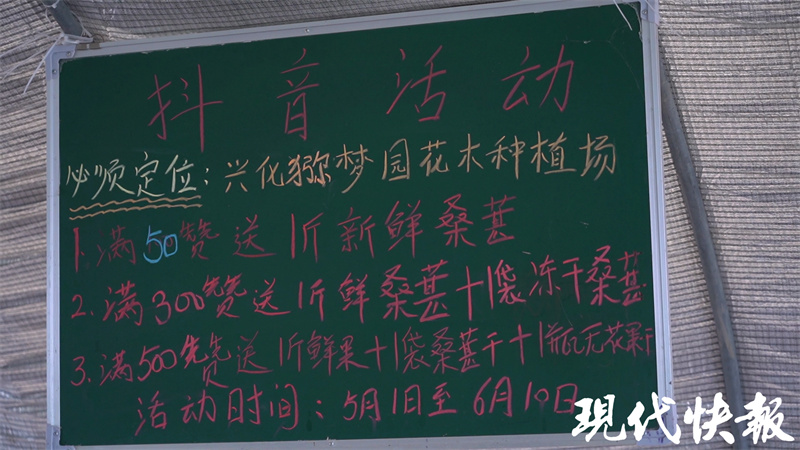 抖音活动
必须定位：兴化猕梦园花木种植场
1.满50赞送1斤新鲜桑葚
2.满300赞送1斤鲜桑葚+1袋冻干桑葚
3.满500赞送1斤鲜果+1袋桑葚干+1瓶无花果干
活动时间：5月1日至6月10日
现代快報